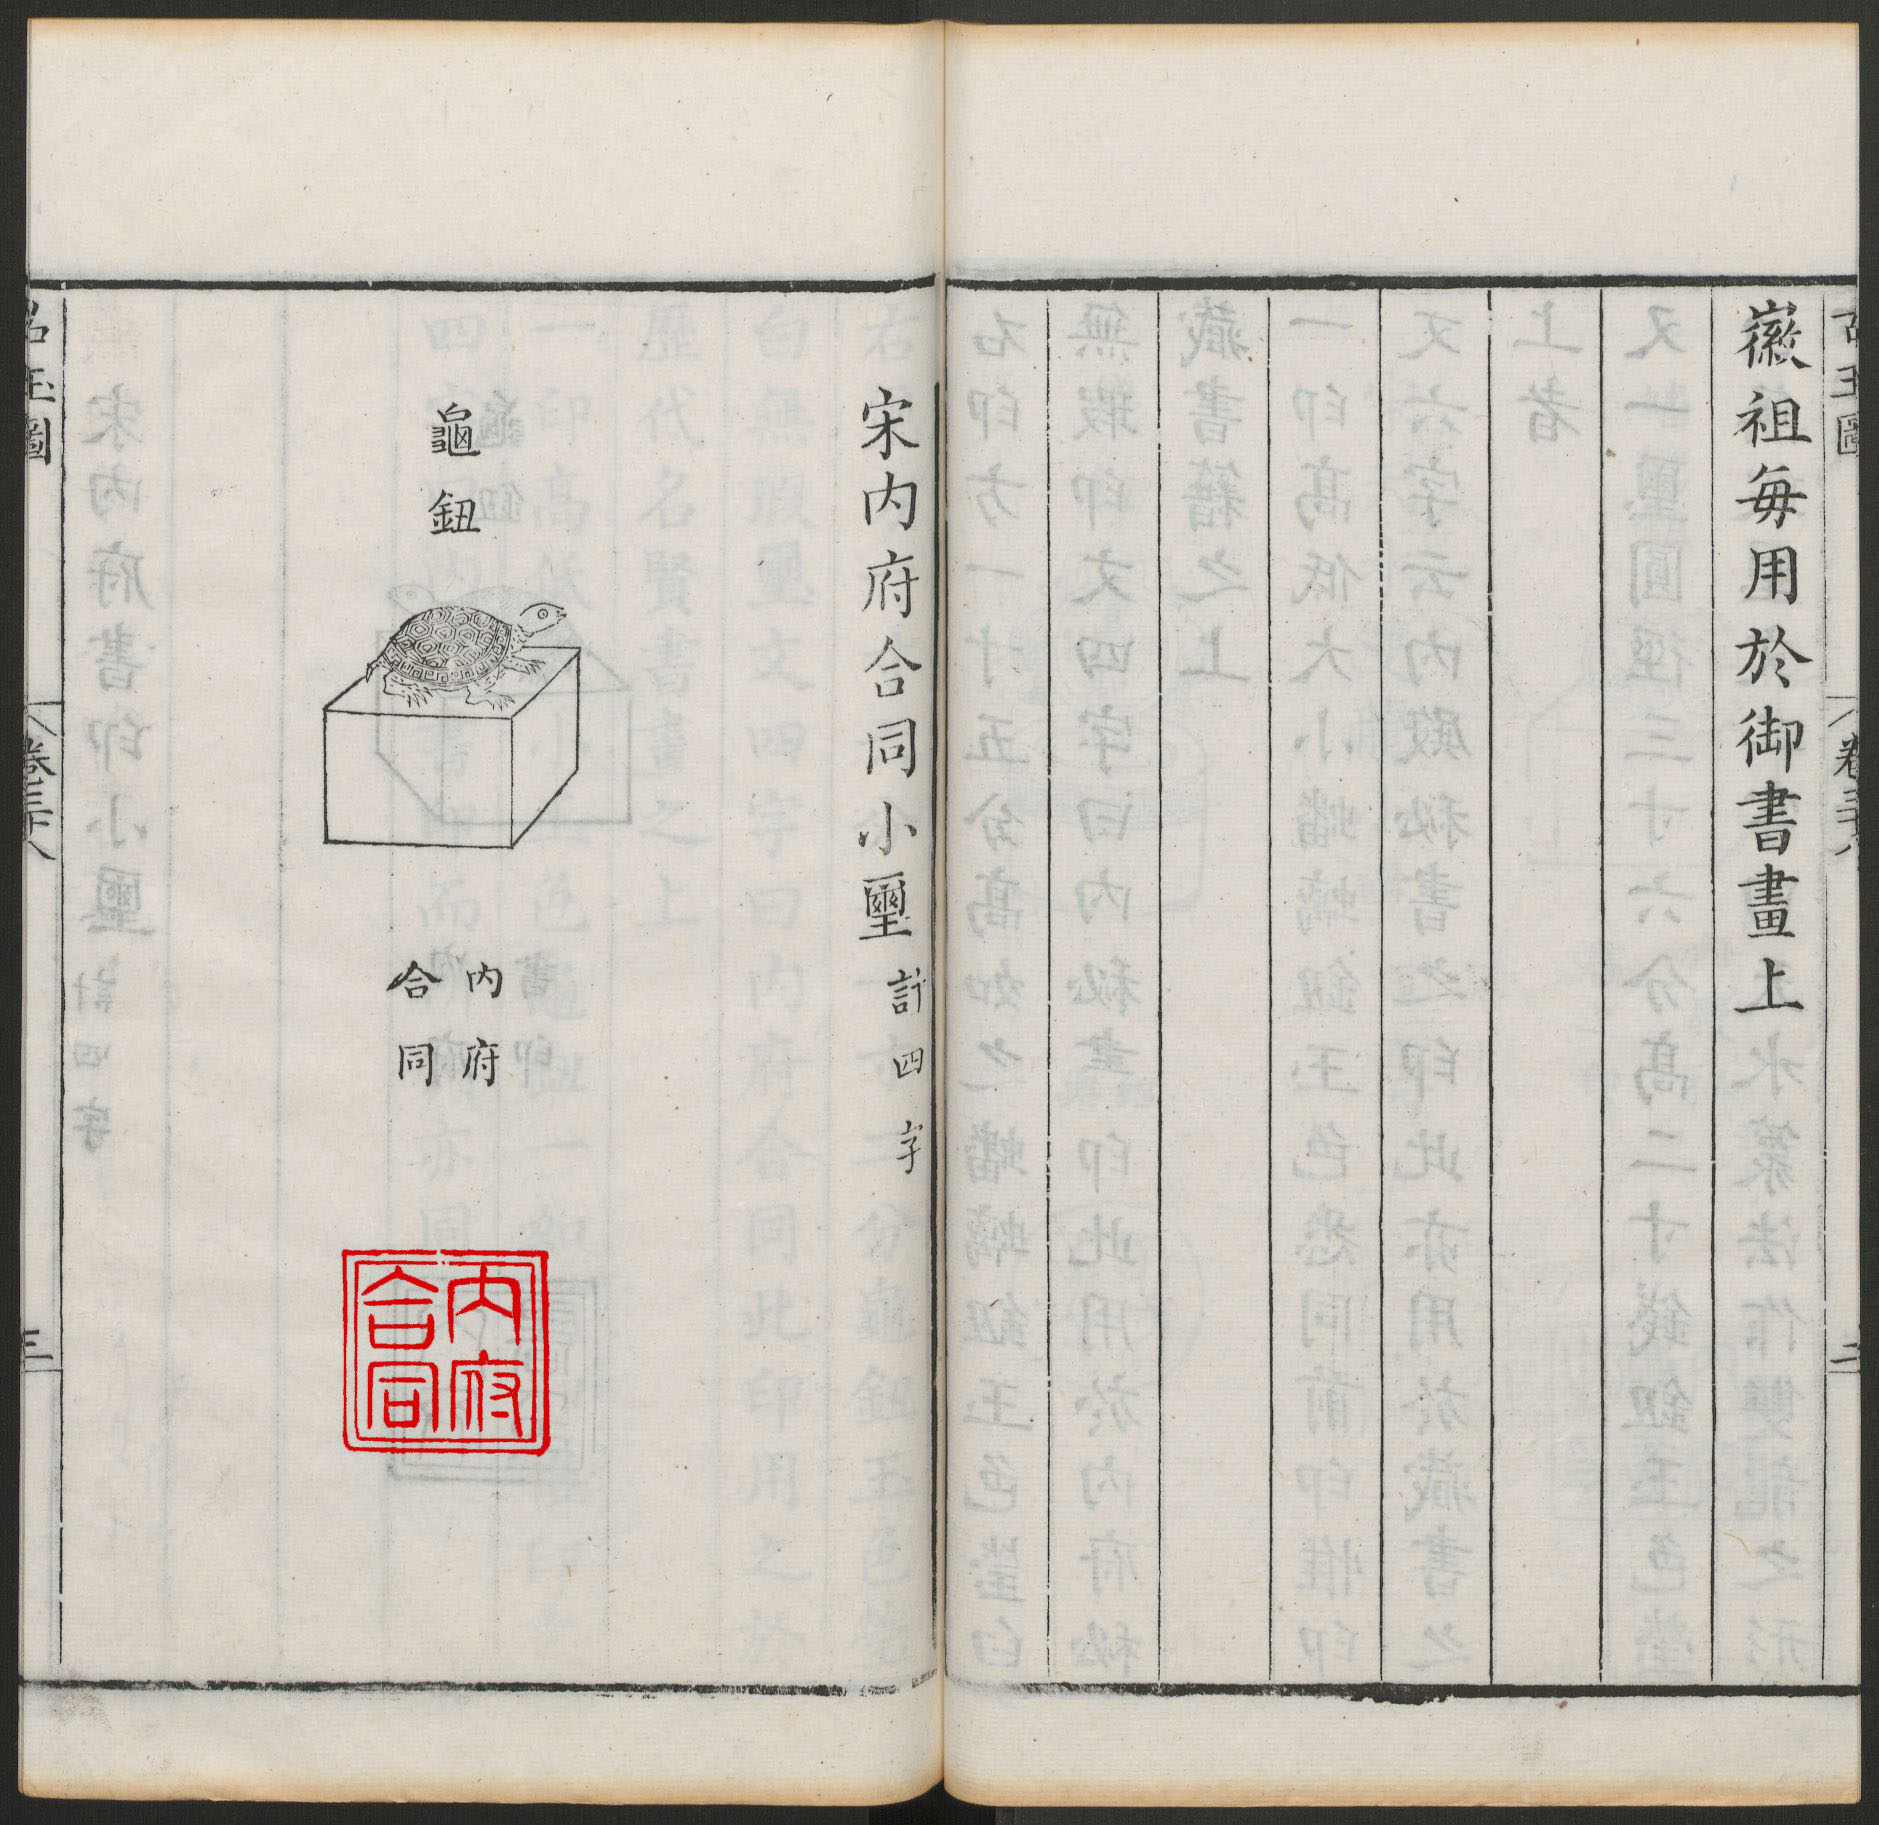 徽祖每用於御書畫上
宋内府合同小璽 計四字
龜鈕
内府
合同
内府
合同
古玉圖
卷三十八
二
古玉圖
卷三十八
三